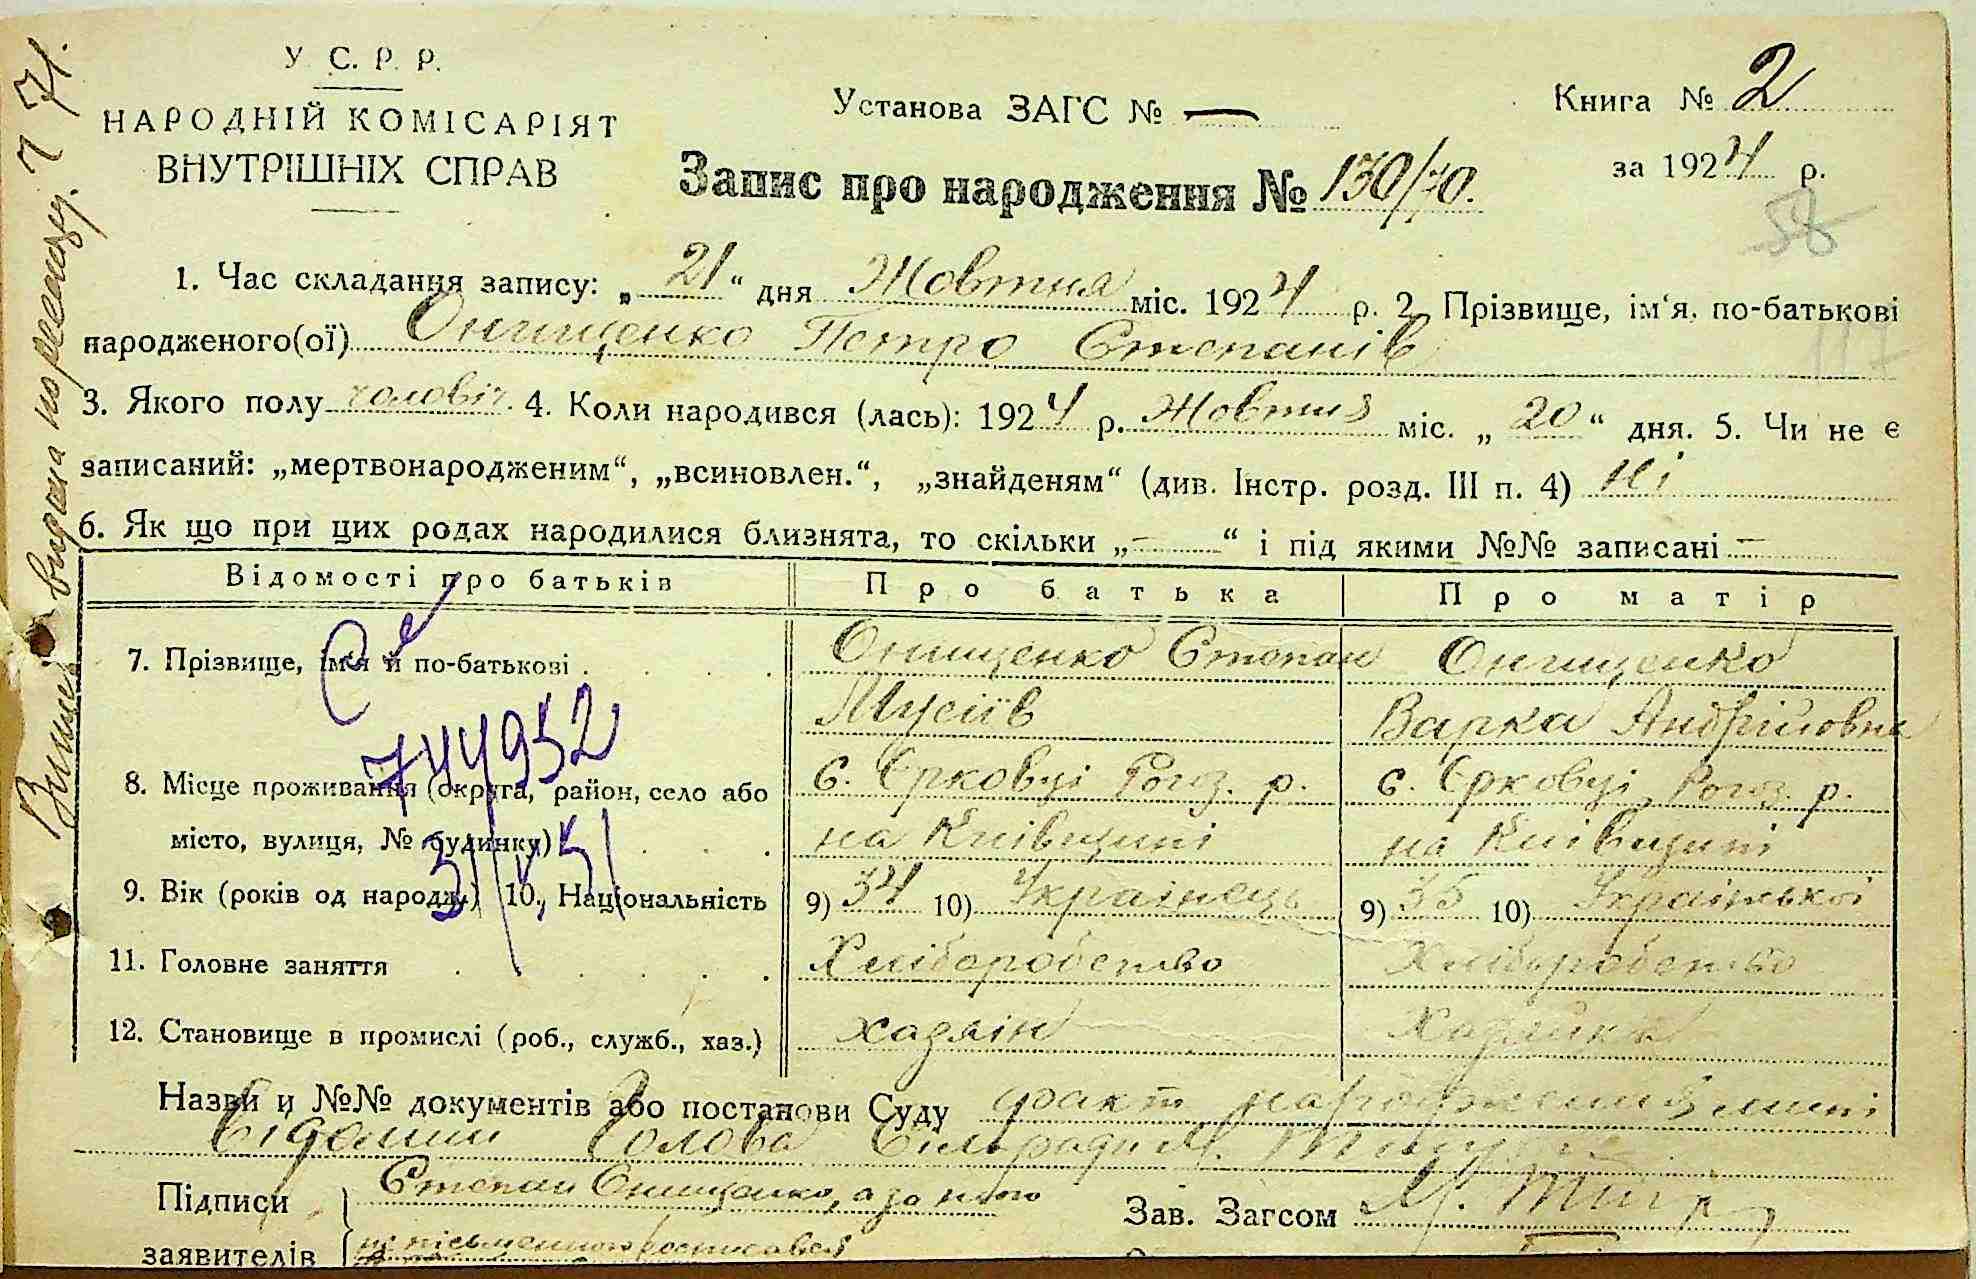 У. С. Р. Р.
НАРОДНІЙ КОМІСАРІЯТ
ВНУТРІШНІХ СПРАВ
Установа ЗАГС № —
Книга № 2
за 1924 р.
Запис про народження № 130/70.
58
117
1. Час складання запису: „21“ дня Жовтня міс. 1924 р. 2. Прізвище, ім‘я, по-батькові
народженого(ої) Онищенко Петро Степанів
3. Якого полу чоловіч. 4. Коли народився (лась): 1924 р. Жовтня міс. „20“ дня. 5. Чи не є
записаний: „мертвонародженим“, „всиновлен.“, „знайденям“ (див. Інстр. розд. III п. 4) Ні
6. Як що при цих родах народилися близнята, то скільки „—“ і під якими №№ записані —
Відомості про батьків Про батька Про матір
7. Прізвище, ім'я й по-батькові Онищенко Степан Онищенко
Мусіїв Варка Андрійовна
8. Місце проживання (округа, район, село або с. Єрковці Рогоз. р. с. Єрковці Рогоз. р.
місто, вулиця, № будинку) на Київщині на Київщині
9. Вік (років од народж.) 10. Національність 9) 34 10) Українець 9) 35 10) Українька
11. Головне заняття Хліборобство Хліборобство
12. Становище в промислі (роб., служб., хаз.) хазяїн Хазяйка
744952
31/V 51
Назви и №№ документів або постанови Суду факт народження мині
відомий Голова Сільради М.
Підписи Степан Онищенко, а за нього
заявителів неписьменного росписався
Зав. Загсом М.
видана